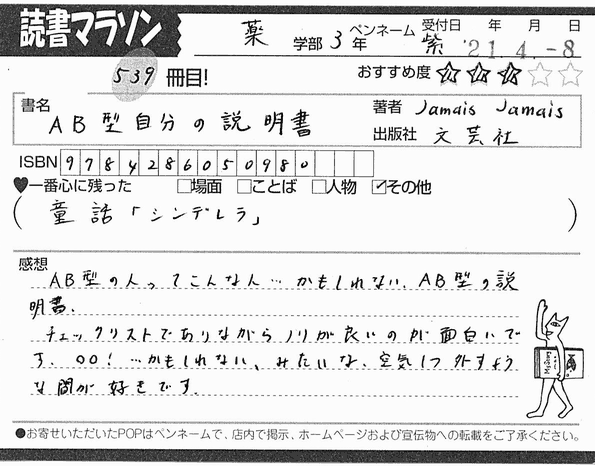 読書マラソン
薬 学部 3 年 ペンネーム 紫 受付日 年 月 日
'21 4.-8
539 冊目! おすすめ度 ★★★☆☆
書名 AB型自分の説明書
著者 Jamais Jamais
出版社 文芸社
ISBN 9784286050980
♥一番心に残った □場面 □ことば □人物 ☑その他
(童話「シンデレラ」)
感想
AB型の人ってこんな人…かもしれない、AB型の説
明書。
チェックリストでありながらノリが良いのが面白いで
す。○○!…かもしれない、みたいな、空気1つ外すよう
な間が好きです。
●お寄せいただいたPOPはペンネームで、店内で掲示、ホームページおよび宣伝物への転載をご了承ください。